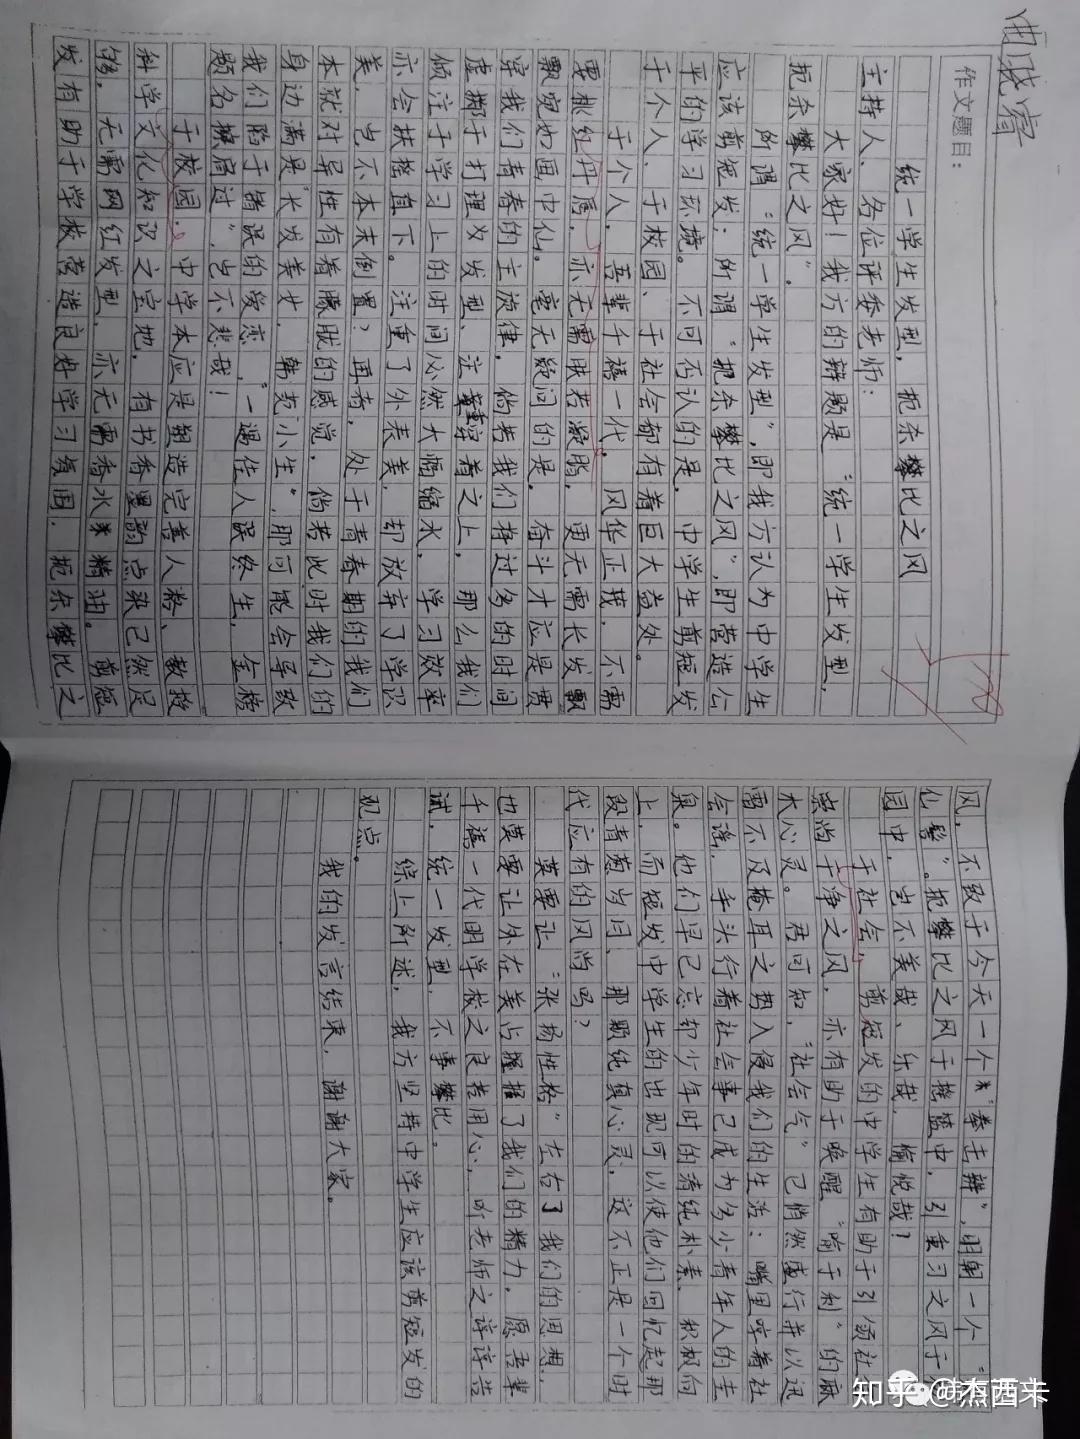 作文题目：
统一学生发型，扼杀攀比之风
主持人、各位评委老师：
大家好！我方的辩题是：“统一学生发型，
扼杀攀比之风”。
所谓“统一学生发型”，即我方认为中学生
应该剪短发；所谓“扼杀攀比之风”，即营造公
平的学习环境。不可否认的是，中学生剪短发
于个人、于校园、于社会都有着巨大益处。
于个人，吾辈千禧一代，风华正茂，不需
要桃红丹唇，亦无需肤若凝脂，更无需长发飘
飘宛如画中仙。毫无疑问的是，奋斗才应是贯
穿我们青春的主旋律，倘若我们将过多的时间
虚掷于打理及发型、注重穿着之上，那么我们
倾注于学习上的时间必然大幅缩水，学习效率
亦会扶摇直下。注重了外表美，却放弃了学识
美，岂不本末倒置？再者，处于青春期的我们
本就对异性有着朦胧的感觉，倘若此时我们的
身边满是“长发美女，韩范小生”，那可能会导致
我们陷于错误的爱恋，“一遇佳人误终生，金榜
题名擦肩过”，岂不悲哉！
于校园，中学本应是塑造完善人格、教授
科学文化知识之宝地，有书香墨韵点染已然足
够，无需网红发型，亦无需香水精油。剪短
发有助于学校营造良好学习氛围，扼杀攀比之
风，不致于今天一个“拳击辫”，明朝一个“
仙髻”。扼攀比之风于摇篮中，引重习之风于校
园中，岂不美哉、乐哉、愉悦哉？
于社会，剪短发的中学生有助于引领社
会尚干净之风，亦有助于唤醒“喻于利”的麻
木心灵。君可知，“社会气”已悄然盛行并以迅
雷不及掩耳之势入侵我们的生活：嘴里哼着社
会谣，手头行着社会事已成为多少青年人的圭
臬。他们早已忘却少年时的清纯朴素、积极向
上，而短发中学生的出现可以使他们回忆起那
段青葱岁月、那颗纯真心灵，这不正是一个时
代应有的风尚吗？
莫要让“张扬性格”左右了我们的思想，
也莫要让外在美占据了我们的精力，愿吾辈
千禧一代明学校之良苦用心，听老师之谆谆告
诫，统一发型，不事攀比。
综上所述，我方坚持中学生应该剪短发的
观点。
我的发言结束，谢谢大家。
知乎 @杰西卡